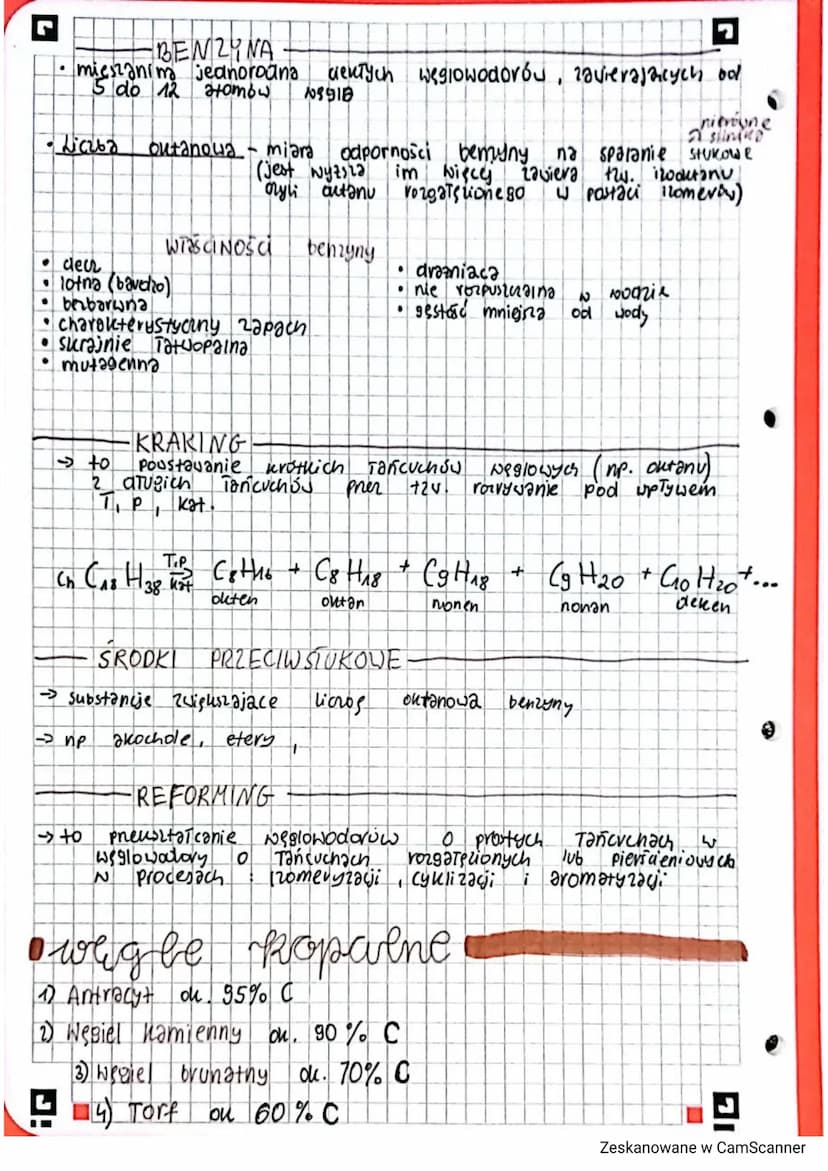 BENZYNA
• mieszanina jednorodna ciekłych węglowodorów, zawierających od
5 do 12 atomów węgla
nierówne
z silnika
• Liczba oktanowa - miara odporności benzyny na spalanie stukowe
(jest wyższa im więcej zawiera tzw. izooktanu
czyli oktanu rozgałęzionego w postaci izomerów)
właściwości benzyny
• ciecz
• lotna (bardzo)
• bezbarwna
• charakterystyczny zapach
• skrajnie łatwopalna
• mutagenna
• drażniąca
• nie rozpuszczalna w wodzie
• gęstość mniejsza od wody
KRAKING
→ to powstawanie krótkich łańcuchów węglowych (np. oktanu)
z długich łańcuchów przez tzv. rozrywanie pod wpływem
T, p, kat.
Cn C18 H38 T,p kat → C8H16 + C8 H18 + C9H18 + C9 H20 + C10 H20 +...
okten oktan nonen nonan deken
ŚRODKI PRZECIWSTUKOWE
→ substancje zwiększające liczbę oktanowa benzyny
→ np akochole, etery ,
REFORMING
→ to przekształcanie węglowodorów o prostych łańcuchach w
węglowodory o łańcuchach rozgałęzionych lub pierścieniowych
w procesach : izomeryzacji , cyklizacji i aromatyzacji
węgle kopalne
1) Antracyt ok. 95% C
2) Węgiel kamienny ok. 90 % C
3) Węgiel brunatny ok. 70% C
4) Torf ok 60 % C
Zeskanowane w CamScanner